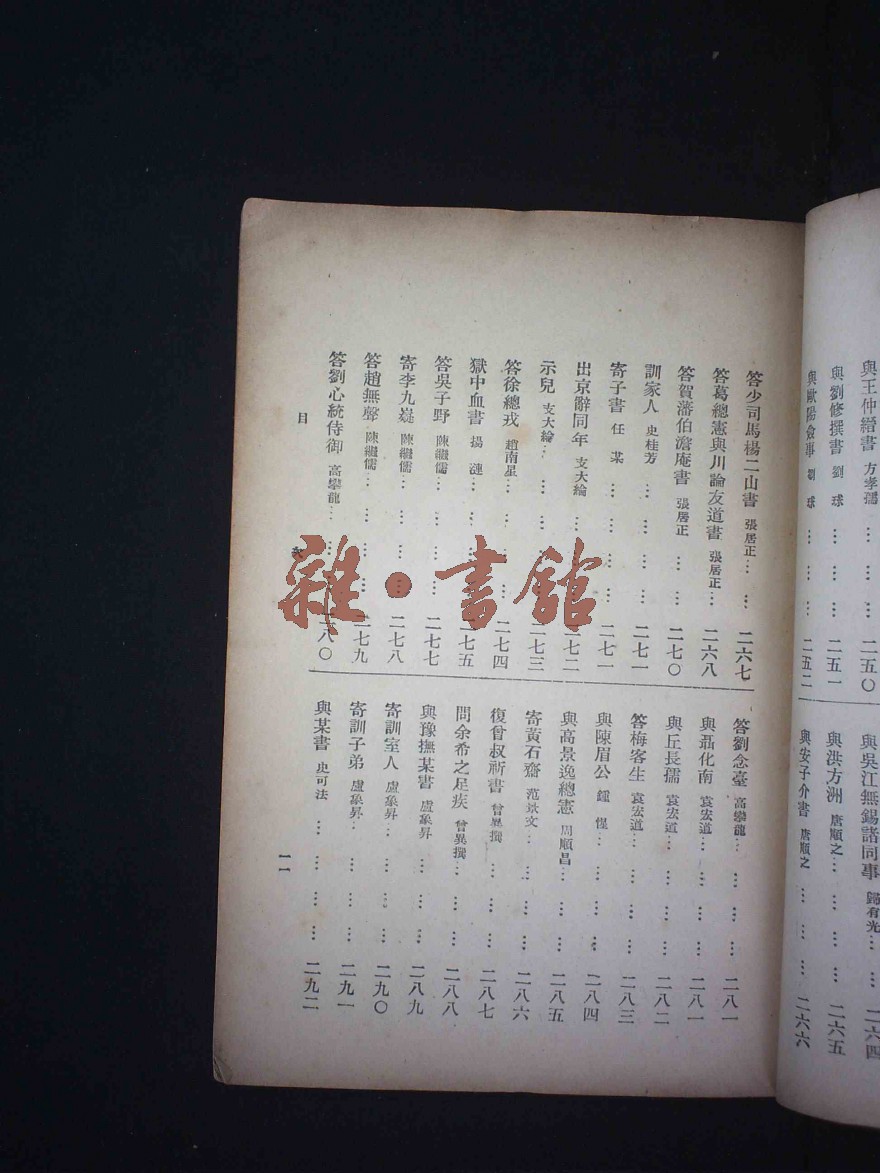 與王仲縉書 方孝孺 … … … 二五〇
與劉修撰書 劉球 … … … … 二五一
與歐陽僉事 劉球 … … … … 二五二
與吳江無錫諸同事 歸有光 … … 二六四
與洪方洲 唐順之 … … … … 二六五
與安子介書 唐順之 … … … 二六六
答少司馬楊二山書 張居正 … … 二六七
答葛總憲與川論友道書 張居正 … 二六八
答賀瀋伯澹庵書 張居正 … … 二七〇
訓家人 史桂芳 … … … … 二七一
寄子書 任某 … … … … 二七一
出京辭同年 支大綸 … … … 二七二
示兒 支大綸 … … … … 二七三
答徐總戎 趙南星 … … … 二七四
獄中血書 揚漣 … … … … 二七五
答吳子野 陳繼儒 … … … … 二七七
寄李九嶷 陳繼儒 … … … … 二七八
答趙無聲 陳繼儒 … … … … 二七九
答劉心統侍御 高攀龍 … … … 二八〇
答劉念臺 高攀龍 … … … … 二八一
與聶化南 袁宏道 … … … … 二八一
與丘長孺 袁宏道 … … … … 二八二
答梅客生 袁宏道 … … … … 二八三
與陳眉公 鍾惺 … … … … 二八四
與高景逸總憲 周順昌 … … … 二八五
寄黃石齋 范景文 … … … … 二八六
復曾叔祈書 曾異撰 … … … 二八七
問余希之足疾 曾異撰 … … … 二八八
與豫撫某書 盧象昇 … … … 二八九
寄訓室人 盧象昇 … … … … 二九〇
寄訓子弟 盧象昇 … … … … 二九一
與某書 史可法 … … … … 二九二
目 次
一一
雜·書館